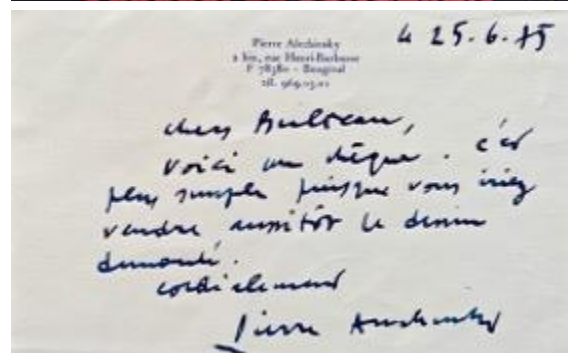 Pierre Alechinsky
2 bis, rue Henri-Barbusse
F 78380 - Bougival
tél. 969.03.01
le 25.6.75
cher Bulteau,
voici un chèque. c'est
plus simple puisque vous iriez
vendre aussitôt le dessin
demandé.
cordialement
Pierre Alechinsky